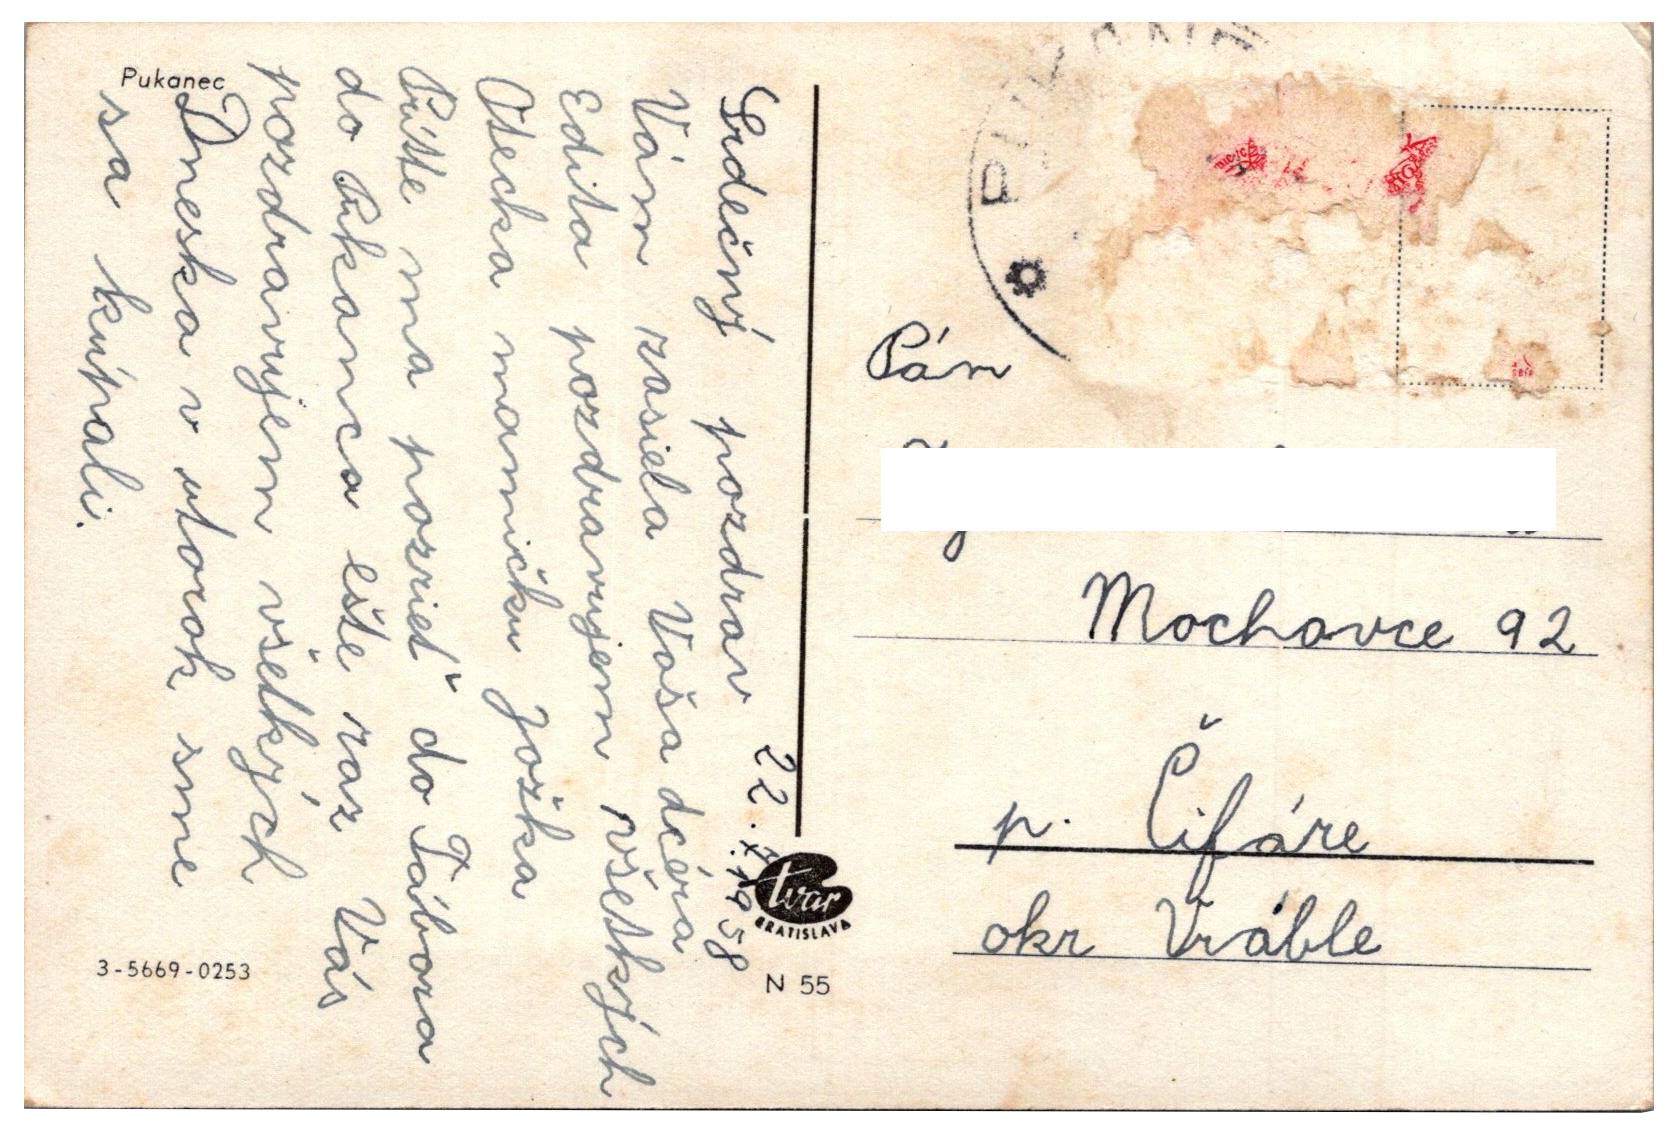 Pukanec
Srdečný pozdrav
22. 7. 1958
Vám zasiela Vaša dcéra
Edita pozdravujem všetkých
Otecka mamičku Jožka
Príďte ma pozrieť do Tábora
do Pukanca ešte raz Vás
pozdravujem všetkých
Dneska v utorok sme
sa kúpali.
3-5669-0253
tvar
BRATISLAVA
N 55
Pán
Mochovce 92
p. Čifáre
okr Vráble